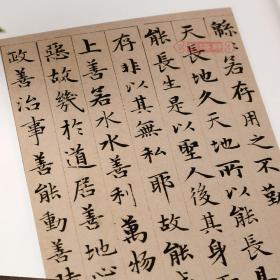 緜若存用之不勤
天長地久天地所以
能長生是以聖人後其身
存非以其無私耶故能
上善若水水善利萬物
惡故幾於道居善地心
政善治事善能動善